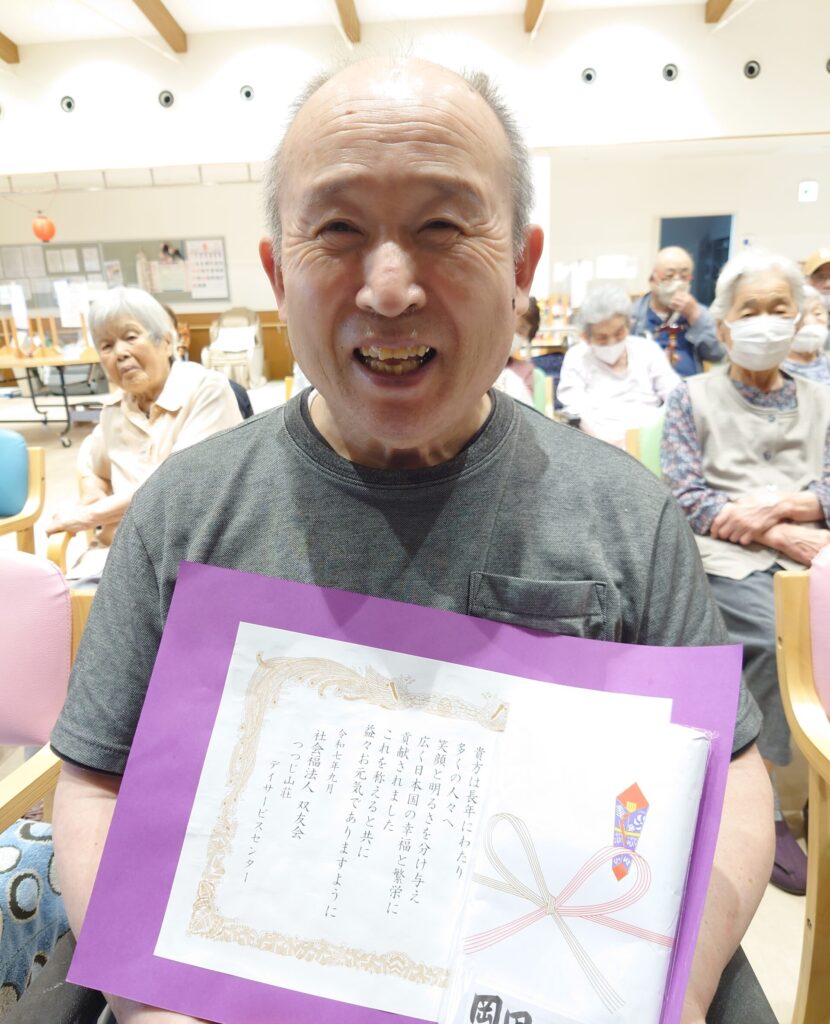 貴方は長年にわたり
多くの人々へ
笑顔と明るさを分け与え
広く日本国の幸福と繁栄に
貢献されました
これを称えると共に
益々お元気でありますように
令和七年九月
社会福法人 双友会
つつじ山荘
デイサービスセンター
岡田